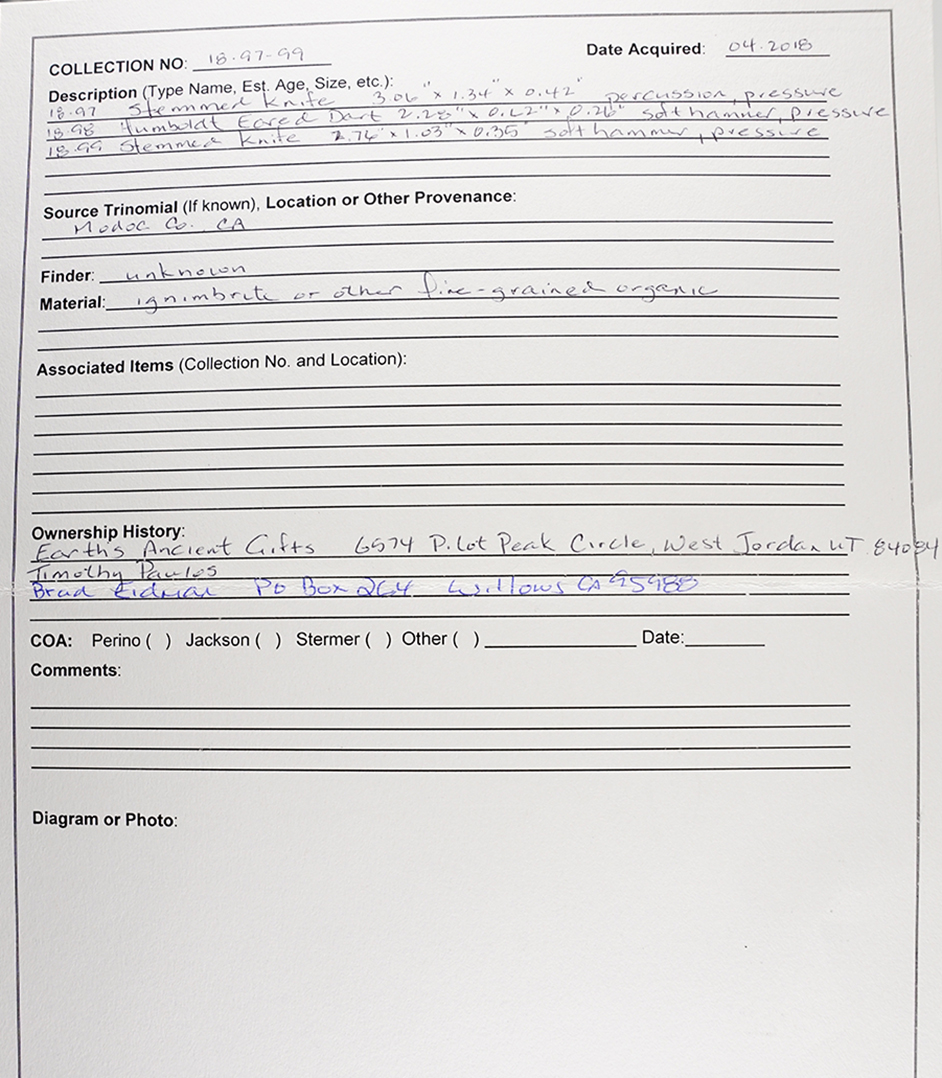 COLLECTION NO: 18.97-99 Date Acquired: 04.2018
Description (Type Name, Est. Age, Size, etc.):
18.97 Stemmed Knife 3.06" x 1.34" x 0.42" percussion, pressure
18.98 Humboldt Eared Dart 2.28" x 0.62" x 0.26" soft hammer, pressure
18.99 Stemmed Knife 2.76" x 1.03" x 0.35" soft hammer, pressure
Source Trinomial (If known), Location or Other Provenance:
Modoc Co. CA
Finder: unknown
Material: ignimbrite or other fine-grained organic
Associated Items (Collection No. and Location):
Ownership History:
Earth's Ancient Gifts 6574 Pilot Peak Circle, West Jordan UT 84084
Timothy Paulos
Brad PO Box 264 Willows CA 95988
COA: Perino ( ) Jackson ( ) Stermer ( ) Other ( ) Date:
Comments:
Diagram or Photo: